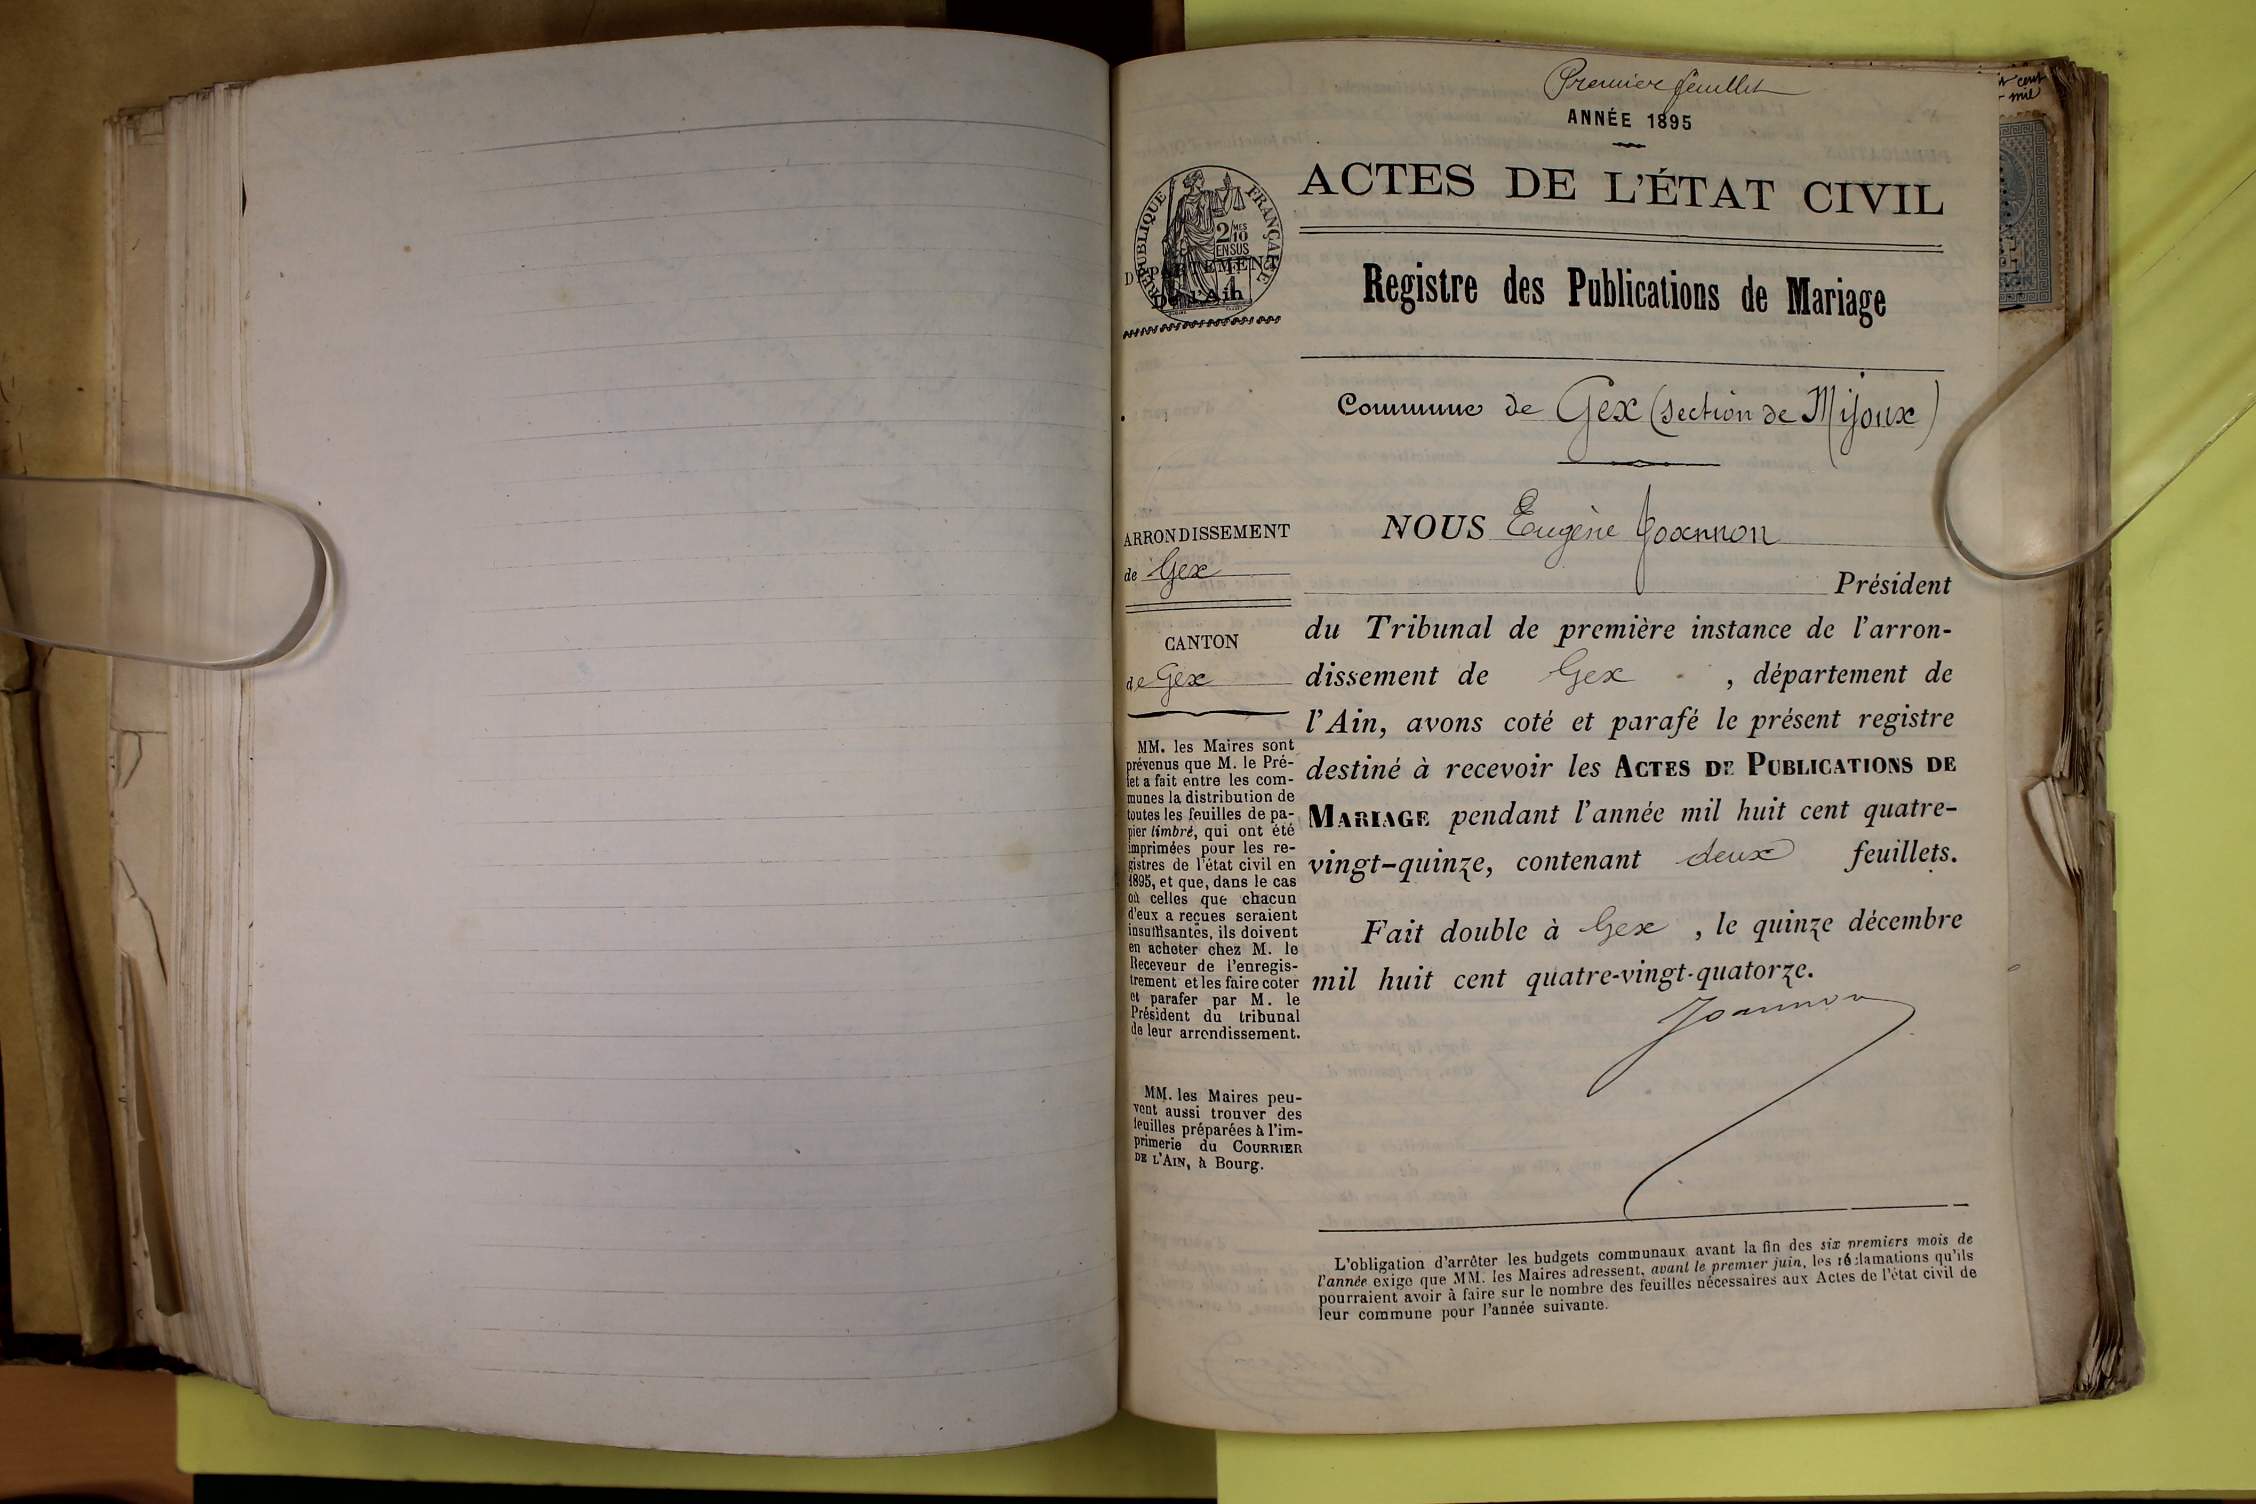 Premier feuillet
ANNÉE 1895
ACTES DE L'ÉTAT CIVIL
RÉPUBLIQUE FRANÇAISE
2/10 MES
EN SUS
DÉPARTEMENT
De l'Ain
Registre des Publications de Mariage
Commune de Gex (section de Mijoux)
ARRONDISSEMENT
de Gex
CANTON
de Gex
MM. les Maires sont
prévenus que M. le Pré-
fet a fait entre les com-
munes la distribution de
toutes les feuilles de pa-
pier timbré, qui ont été
imprimées pour les re-
gistres de l'état civil en
1895, et que, dans le cas
où celles que chacun
d'eux a reçues seraient
insuffisantes, ils doivent
en acheter chez M. le
Receveur de l'enregis-
trement et les faire coter
et parafer par M. le
Président du tribunal
de leur arrondissement.
MM. les Maires peu-
vent aussi trouver des
feuilles préparées à l'im-
primerie du COURRIER
DE L'AIN, à Bourg.
NOUS Eugène Joannon
Président
du Tribunal de première instance de l'arron-
dissement de Gex, département de
l'Ain, avons coté et parafé le présent registre
destiné à recevoir les ACTES DE PUBLICATIONS DE
MARIAGE pendant l'année mil huit cent quatre-
vingt-quinze, contenant deux feuillets.
Fait double à Gex, le quinze décembre
mil huit cent quatre-vingt-quatorze.
Joannon
L'obligation d'arrêter les budgets communaux avant la fin des six premiers mois de
l'année exige que MM. les Maires adressent, avant le premier juin, les réclamations qu'ils
pourraient avoir à faire sur le nombre des feuilles nécessaires aux Actes de l'état civil de
leur commune pour l'année suivante.
cent
mil